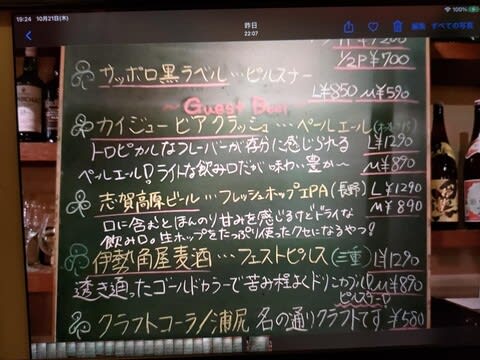 19:24 10月21日(木)
昨日
22:07
100%
編集 すべての写真
1/2P ¥700
サッポロ黒ラベル…ピルスナー
L¥850 M¥590
~Guest Beer
カイジュービアクラッシュ…ペールエール
L¥1290
トロピカルなフレーバーが存分に感じられる
M¥890
ペールエール!ライトな飲み口だが味わい豊か~
志賀高原ビール…フレッシュホップIPA(長野) L¥1290
M¥890
口に含むとほんのり甘みを感じるけどドライな
飲み口。生ホップをたっぷり使ったクセになるやつ!
伊勢角屋麦酒…フェストピルス(三重) L¥1290
透き通ったゴールドカラーで苦み程よくドリンカブル M¥890
ピルスナー!
クラフトコーラ/浦尻 名の通りクラフトです ¥580